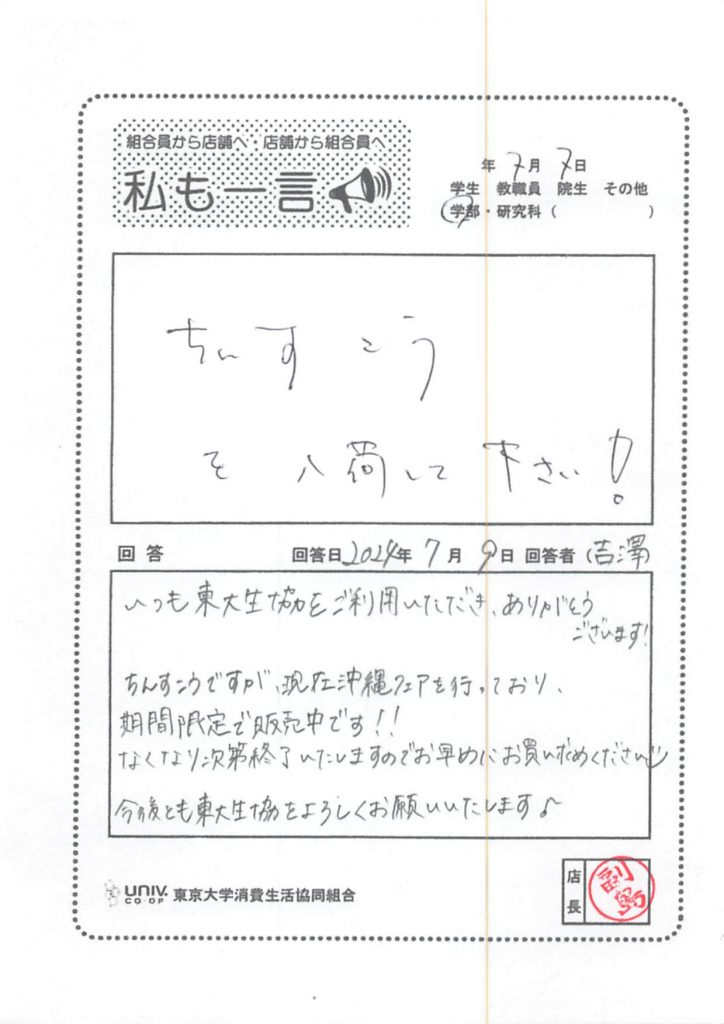 組合員から店舗へ・店舗から組合員へ
私も一言
年7月7日
学生 教職員 院生 その他
学部・研究科( )
ちんすこう
を入荷して下さい!
回答 回答日2024年7月9日 回答者(吉澤)
いつも東大生協をご利用いただき、ありがとう
ございます!
ちんすこうですが、現在沖縄フェアを行っており、
期間限定で販売中です!!
なくなり次第終了いたしますのでお早めにお買い求めください
今後とも東大生協をよろしくお願いいたします♪
UNIV.
CO-OP
東京大学消費生活協同組合
店長